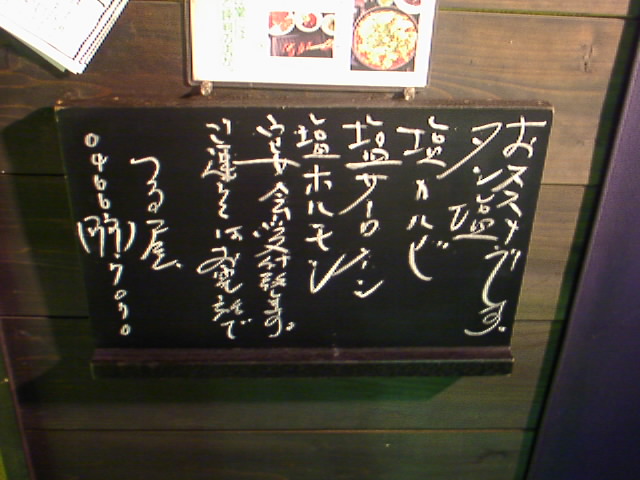 おススメです。
タン塩
塩カルビ
塩サーロイン
塩ホルモン
宴会受付致ます。
ご連らくはお電話で
つる屋
0466(33)7070